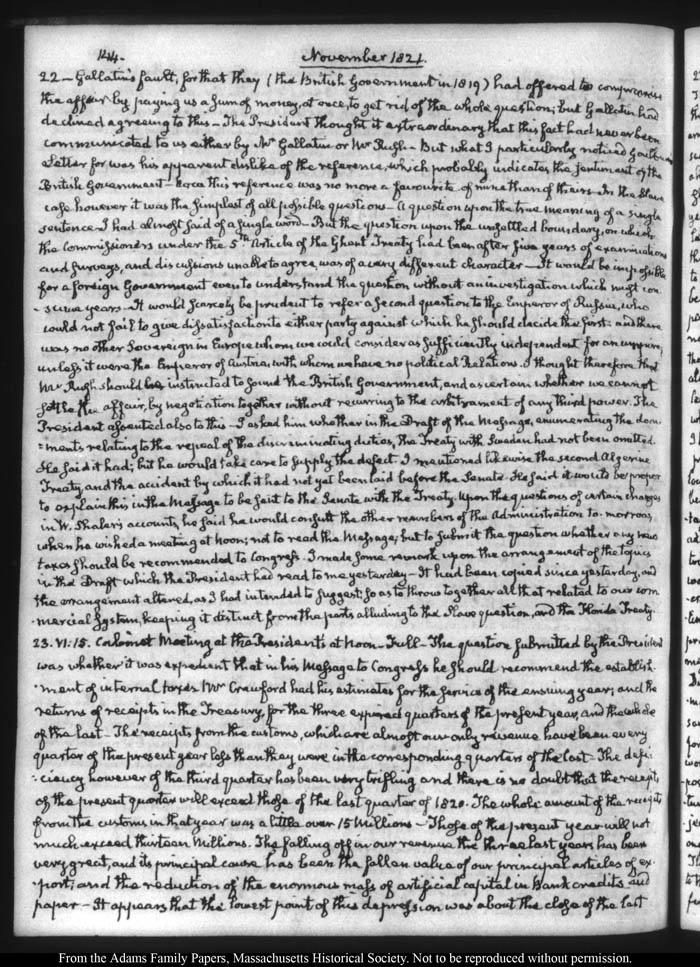 144.
November 1821.
22 — Gallatin's fault, for that they (the British Government in 1819) had offered to compromise
the affair by paying us a sum of money, at once, to get rid of the whole question; but Gallatin had
declined agreeing to this — The President thought it extraordinary that this fact had never been
communicated to us either by Mr Gallatin or Mr Rush — But what I particularly noticed in
Letter for was his apparent dislike of the reference, which probably indicates the sentiment of the
British Government — this reference was no more a favourite of mine than of theirs — In the Slave
case however it was the simplest of all possible questions — A question upon the true meaning of a single
sentence — I had almost said of a single word — But the question upon the unsettled boundary, on which
the Commissioners under the 5th Article of the Ghent Treaty had been after five years of examinations
and surveys, and discussions unable to agree, was of a very different character — It would be impossible
for a foreign Government even to understand the question without an investigation which might con-
-sume years — It would scarcely be prudent to refer a second question to the Emperor of Russia, who
could not fail to give dissatisfaction to either party against which he should decide the first — and there
was no other Sovereign in Europe whom we could consider as sufficiently independent for an umpire,
unless it were the Emperor of Austria, with whom we have no political Relations. I thought therefore that
Mr Rush should be instructed to sound the British Government, and ascertain whether we cannot
settle the affair, by negotiation together without recurring to the arbitrament of any third power. The
President assented also to this — I asked him whether in the Draft of the Message, enumerating the docu
-ments relating to the repeal of the discriminating duties, the Treaty with Sweden had not been omitted.
He said it had; but he would take care to supply the defect. I mentioned likewise the second Algerine
Treaty, and the accident by which it had not yet been laid before the Senate. He said it would be proper
to explain this in the Message to be sent to the Senate with the Treaty. Upon the questions of certain charges
in W. Shaler's accounts, he said he would consult the other members of the Administration to-morrow,
when he wished a meeting at Noon; not to read the Message, but to submit the question whether any new
taxes should be recommended to Congress. I made some remark upon the arrangement of the topics
in the Draft which the President had read to me yesterday — It had been copied since yesterday, and
the arrangement altered, as I had intended to suggest; so as to throw together all that related to our com
-mercial System, keeping it distinct from the parts alluding to the Slave question, and the Florida Treaty.
23. VI:15. Cabinet Meeting at the President's at Noon — Full — The question submitted by the President
was whether it was expedient that in his Message to Congress he should recommend the establish-
-ment of internal taxes. Mr Crawford had his estimates for the service of the ensuing year; and the
returns of receipts in the Treasury, for the three expired quarters of the present year, and the whole
of the last — The receipts from the customs, which are almost our only revenue have been every
quarter of the present year less than they were in the corresponding quarters of the last — The defi-
-ciency however of the third quarter has been very trifling and there is no doubt that the receipts
of the present quarter will exceed those of the last quarter of 1820. The whole amount of the receipts
from the customs in that year was a little over 15 Millions — Those of the present year will not
much exceed thirteen Millions. The falling off in our revenue the three last years has been
very great, and its principal cause has been the fallen value of our principal articles of ex-
-port; and the reduction of the enormous mass of artificial capital in Bank credits and
paper — It appears that the lowest point of this depression was about the close of the last
From the Adams Family Papers, Massachusetts Historical Society. Not to be reproduced without permission.